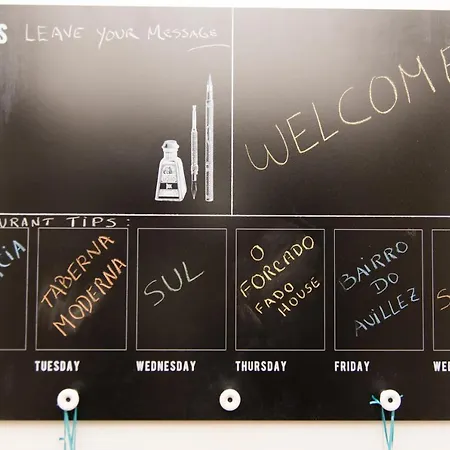 LEAVE YOUR MESSAGE
WELCOME
TIPS:
TABERNA
MODERNA
SUL
O
FORCADO
FADO
HOUSE
BAIRRO
DO
AVILLEZ
TUESDAY
WEDNESDAY
THURSDAY
FRIDAY